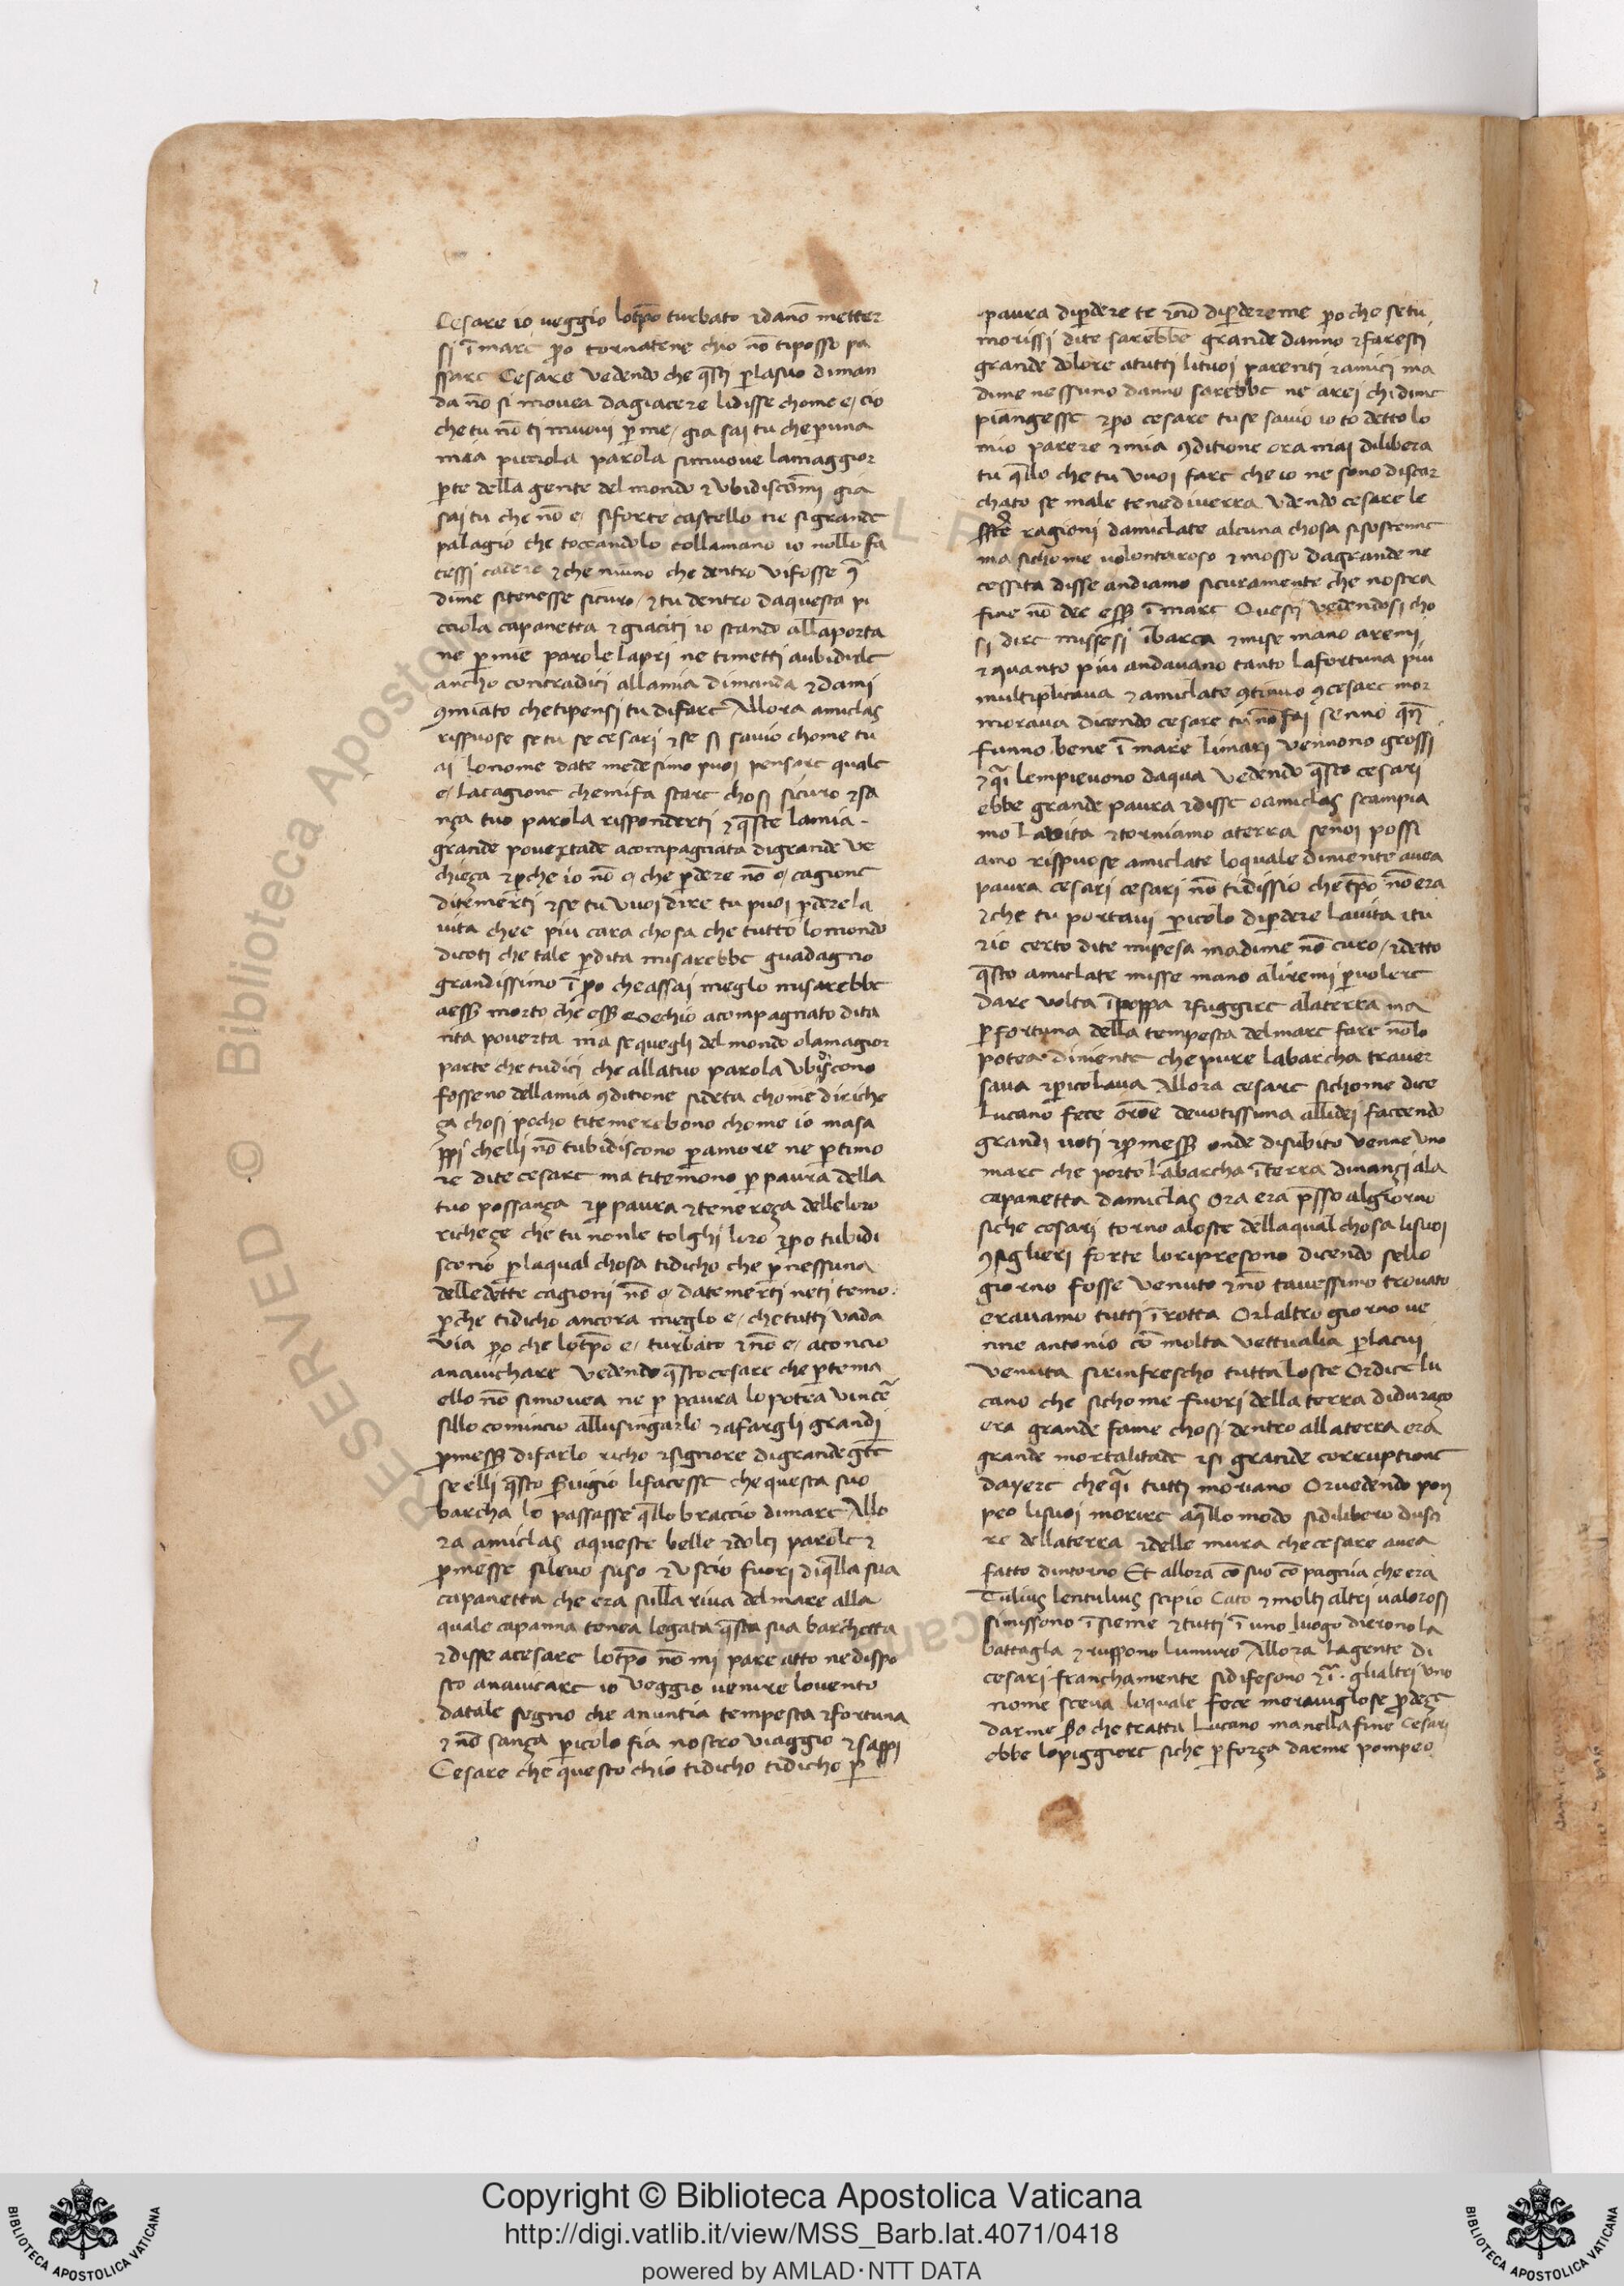 Cesare io veggio lotp̄o turbato ⁊dano metter
si ī mare ꝑo tornatene chio nō tiposso pa
ssare Cesare vedendo che q̄sti ꝑlasuo diman
da nō si movea dagiacere lidisse chome e, cio
che tu nō ti muovi ꝑ me, gia sai tu che ꝑuna
mia picciola parola simuove lamaggior
ꝑte della gente del mondo ⁊ vbidiscōmi gia
sai tu che nō e, siforte castello ne sigrande
palagio che toccandolo collamano io nollo fa
cessi cadere ⁊ che niuno che dentro vifosse ꝯ
dime sitenesse sicuro, ⁊ tu dentro daquesta pi
cciola capanetta ⁊ giaciti io stando allaporta
ne ꝑ mie parole lapri ne timetti aubidirle
ancho contradici allamia dimanda ⁊ dami
ꝯmiato chetipensi tu difare Allora amiclas
rispuose setu se cesari ⁊ se si savio chome tu
ai lonome date medesimo puoi pensare quale
e, lacagione chemifa stare chosi sicuro ⁊ sa
nza tuo parola risponderti ⁊ q̄ste lamia
grande povertade acompagnata digrande ve
chieza ⁊ ꝑche io nō o, che ꝑdere nō o, cagione
ditemerti ⁊ se tu vuoi dire tu puoi ꝑderela
vita chee piu cara chosa che tutto lomondo
dicoti che tale ꝑdita misarebbe guadagno
grandissimo ī ꝑo cheassai meglo misarebbe
aess̄ morto che ess̄ vechio acompagnato dita
nta poverta ma sequegli del mondo olamagior
parte che tudici che allatuo parola vbidiscono
fosseno dellamia ꝯditione sideta chome diriche
za chosi pocho titemerebono chome io masa
ppi chelli nō tubidiscono ꝑ amore ne ꝑ timo
re dite cesare ma titemono ꝑ paura della
tuo possanza ⁊ ꝑ paura ⁊ tenereza delleloro
richeze che tu nonle tolghi loro ⁊ ꝑo tubidi
scono ꝑ laqual chosa tidicho che ꝑ nessuna
delledette cagioni nō o, datemerti neti temo
ꝑche tidicho ancora meglo e, chetutti vada
via ꝑo che lotp̄o e, turbato ⁊ nō e, atoncio
anavichare vedendo q̄stocesare che ꝑ tema
ello nō simovea ne ꝑ paura lopotea vincē
sillo comincio allusingarlo ⁊ afargli grandi
ꝓmess̄ difarlo richo ⁊ signore digrande gēte
se elli q̄sto ẜvigio lifacesse che questa suo
barcha lo passasse q̄llo braccio dimare Allo
ra amiclas aqueste belle ⁊ dolci parole ⁊
ꝓmesse silevo suso ⁊ vscio fuori diq̄lla sua
capanetta che era sulla riva del mare alla
quale capanna tenea legata q̄sta sua barchetta
⁊ disse acesare lotp̄o nō mi pare atto nedispo
sto anavicare io veggio venire lovento
datale segno che anuntia tempesta ⁊ fortuna
⁊ nō sanza ꝑicolo fia nostro viaggio ⁊ sappi
Cesare che questo chio tidicho tidicho ꝑ
paura diꝑdere te ⁊ nō diꝑdereme ꝑo che setu
morissi dite sarebbe grande danno ⁊ faresti
grande dolore atutti lituoi parenti ⁊ amici ma
dime nessuno danno sarebbe ne arei chi dime
piangesse ⁊ ꝑo cesare tuse savio io to detto lo
mio parere ⁊ mia ꝯditione ora mai dilibera
tu q̄llo che tu vuoi fare che io ne sono discar
chato se male tenediverra vdendo cesare le
ragioni damiclate alcuna chosa sisostenne
ma sichome volontaroso ⁊ mosso dagrande ne
cessita disse andiamo sicuramente che nostra
fine nō dee ess̄ ī mare Questi vedendosi cho
si dire missesi ībarca ⁊ mise mano aremi
⁊ quanto piu andavano tanto lafortuna piu
multiplicava ⁊ amiclate ꝯtinuo ꝯ cesare mor
morava dicendo cesare tu nō fai senno qn̄
funno bene ī mare limari vennono grossi
⁊ q̄i lempievono daqua vedendo q̄sto cesari
ebbe grande paura ⁊ disse o amiclas scampia
mo lavita ⁊ torniamo aterra senoi possi
amo rispuose amiclate loquale diniente avea
paura cesari cesari nō tidissio che tp̄o nō era
⁊ che tu portavi ꝑicolo diꝑdere lavita ⁊ tu
⁊ io certo dite mipesa madime nō curo, ⁊ detto
q̄sto amiclate misse mano aliremi ꝑ volere
dare volta ī poppa ⁊ fuggire alaterra ma
ꝑ fortuna della tempesta delmare fare nōlo
potea diniente che pure labarcha traver
sava ⁊ ꝑicolava Allora cesare sichome dice
Lucano fece orōe devotissima allidei faccendo
grandi voti ⁊ ꝓmess̄ onde disubito venne vno
mare che porto labarcha ī terra dinanzi ala
capanetta damiclas ora era ꝑsso algiorno
siche cesari torno aloste dellaqual chosa lisuoi
ꝯsiglieri forte loripresono dicendo sello
giorno fosse venuto ⁊ nō tavessimo trovato
eravamo tutti ī rotta Orlaltro giorno ve
nne antonio cō molta vettualia ꝑ lacui
venuta sirinfrescho tutta loste Ordice lu
cano che sichome fuori della terra didurazo
era grande fame chosi dentro allaterra era
grande mortalitade ⁊ si grande corruptione
dayere che q̄i tutti moriano Orvedendo pon
peo lisuoi morire aq̄llo modo sidilibero dusci
re dellaterra ⁊ delle mura che cesare avea
fatto dintorno Et allora cō suo cō pagnia che era
Tulius lentulius scipio Cato ⁊ molti altri valorosi
simissono ī sieme ⁊ tutti ī uno luogo dierono la
battagla ⁊ ruppono lumuro Allora lagente di
cesari franchamente sidifesono ⁊ ī glialtri vno
nome sceva loquale fece meraviglose ꝓdeze
darme ẜo che tratta Lucano manella fine Cesari
ebbe lopiggiore siche ꝑ forza darme pompeo
Copyright © Biblioteca Apostolica Vaticana
http://digi.vatlib.it/view/MSS_Barb.lat.4071/0418
powered by AMLAD·NTT DATA